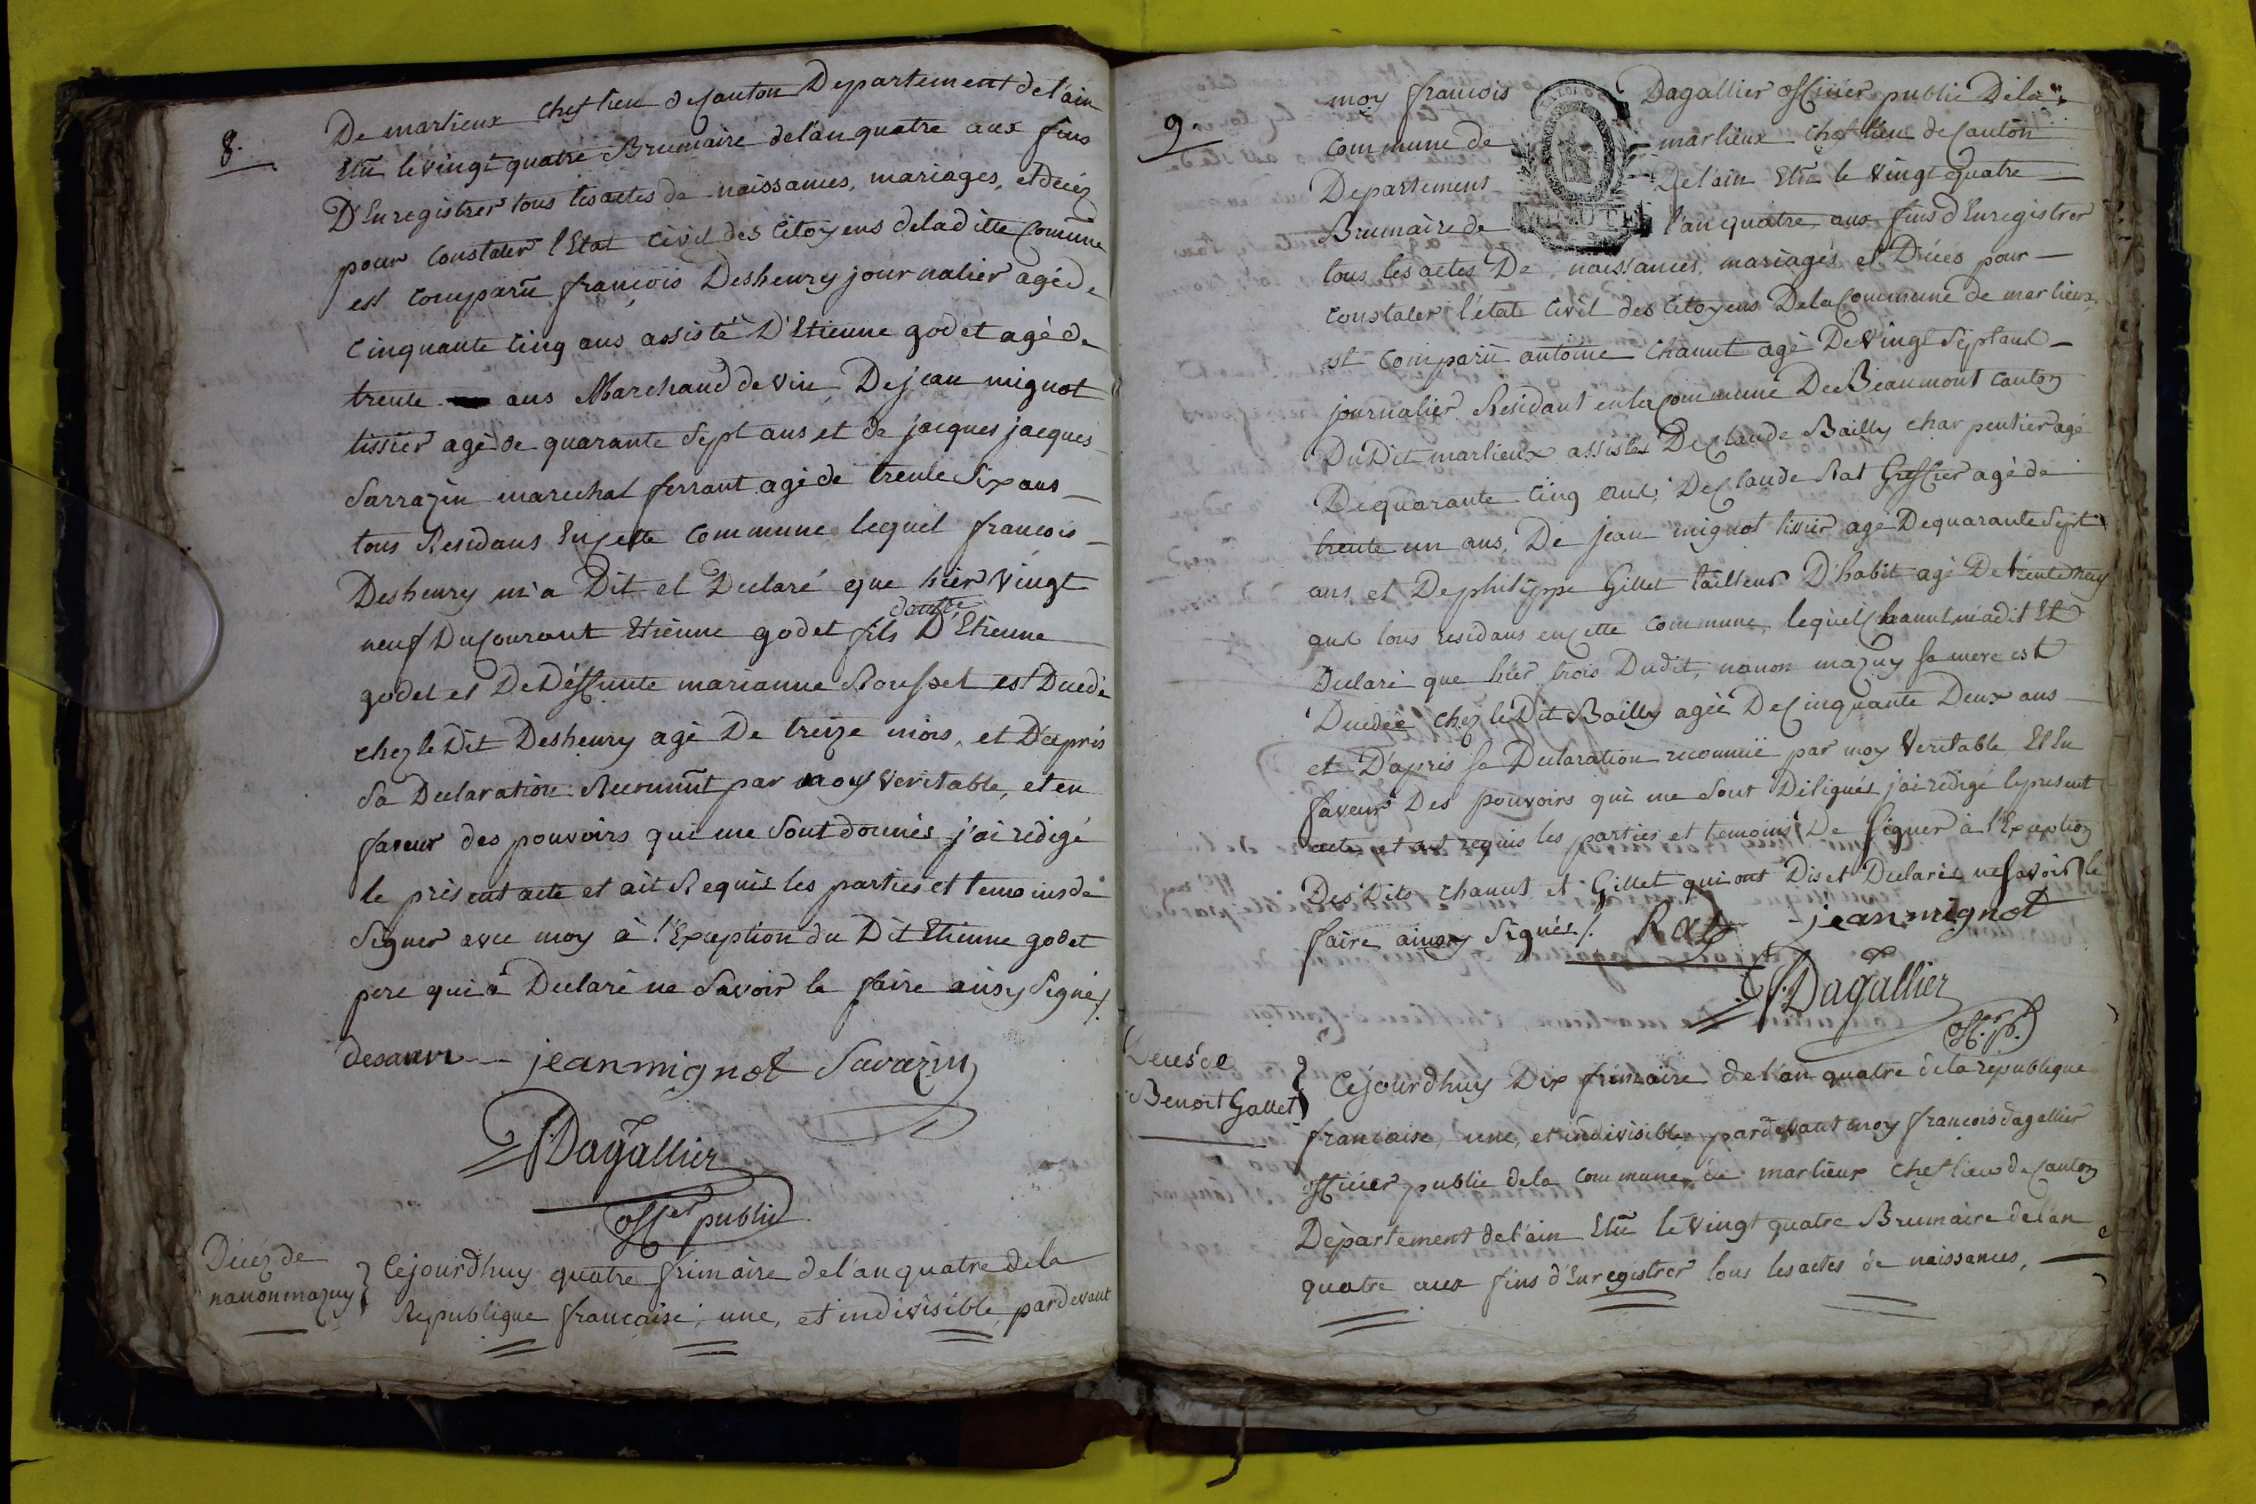 8.
De marlieux chef lieu de Canton Departement de l'ain
Elu le vingt quatre Brumaire de l'an quatre aux fins
D'Enregistrer tous les actes de naissances, mariages, et décéz
pour constater l'Etat Civil des Citoyens de la ditte Commune
est comparu françois Deshenry journalier agé de
cinquante cinq ans assisté D'Etienne godet agé de
trente ans Marchand de vin, De jean mignot
tissier agé de quarante Sept ans et de jacques jacques
Sarrazin marechal ferrant agé de trente Six ans
tous Residans En cette Commune lequel francois
Deshenry m'a Dit et Declaré que hier vingt
neuf Du Courant Etienne godet fils D'Etienne
godet et De Déffunte marianne Rousset est Decedé
chez le Dit Deshenry agé De treize mois, et D'apris
Sa Declaration Reconnüt par moy veritable, et en
faveur des pouvoirs qui me Sont donnés j'ai redigé
le présent acte et ait Requis les parties et temoins de
Signer avec moy à l'Exception du Dit Etienne godet
pere qui a Declaré ne Savoir le faire ainsy Signé /.
jean mignot Sarazin
f. Dagallier
off.er public
Décéz de
nanon mazuy
Cejourdhuy quatre frimaire de l'an quatre de la
Republique francaise, une, et indivisible, pardevant
9.
moy francois Dagallier officier public De la
Commune de marlieux chef lieu de Canton
Departement De l'ain Elu le Vingt quatre
Brumaire de l'an quatre aux fins d'Enregistrer
MINUTE
tous les actes De naissances, mariages et Décés pour
constater l'état Civil des Citoyens De la Commune de marlieux
est comparü antoine Chanut agé De Vingt Sept ans
journalier Residant en la Commune De Beaumont canton
Du Dit marlieux assistés De Claude Bailly charpentier agé
De quarante cinq ans, De Claude Rat Greffier agé de
trente un ans, De jean mignot tissier agé De quarante Sept
ans et De philippe Gillet tailleur D'habit agé De trente
ans tous residans en cette commune, lequel Chanut m'a dit Et
Declaré que hier trois Dudit, nanon mazuy sa mere est
Decedée chez le Dit Bailly agée De Cinquante Deux ans
et D'apris sa Declaration reconnüe par moy Veritable Et En
faveur Des pouvoirs qui me Sont Deligués j'ai redigé le present
acte et ait requis les parties et temoins De signer à l'Exception
Des Dits Chanut et Gillet qui ont Dis et Declaré ne savoir le
faire ainsy Signés /. Rat jean mignot
f. Dagallier
off.er p.
Decés de
Benoit Gallet
Cejourdhuy Dix frimaire de l'an quatre de la republique
francaise, une, et indivisible, pardevant moy francois dagallier
officier public de la commune de marlieux chef lieu de Canton
Département de l'ain Elu le Vingt quatre Brumaire de l'an
quatre aux fins d'Enregistrer tous les actes de naissances,